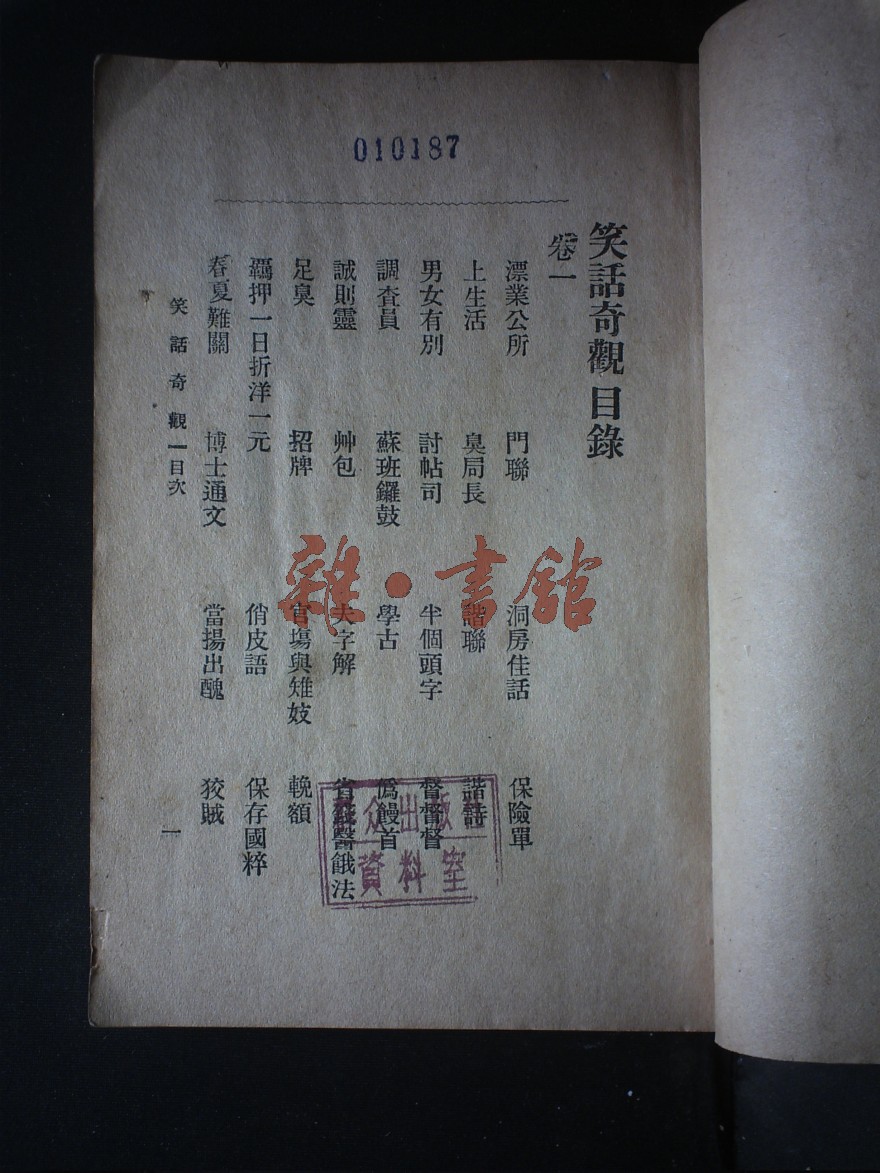 010187
笑話奇觀目錄
卷一
漂業公所 門聯 洞房佳話 保險單
上生活 臭局長 諧聯 諧詩
男女有別 討帖司 半個頭字 督督督
調查員 蘇班鑼鼓 學古 僞饅首
誠則靈 艸包 夫字解 省錢醫餓法
足臭 招牌 官塲與雉妓 輓額
羈押一日折洋一元 俏皮語 保存國粹
春夏難關 博士通文 當揚出醜 狡賊
笑話奇觀 目次
一
雜·書館
眾出版社
資料室